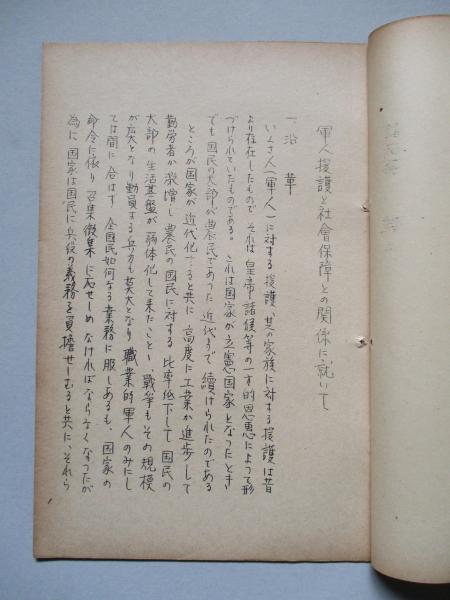 軍人援護と社會保障との関係に就いて
一、沿革
いくさ人（軍人）に対する援護、其の家族に対する援護は昔
より存在したもので、それは皇帝諸侯等の一方的恩恵によって形
づけられていたものである。これは国家が立憲国家となったとき
でも国民の大部が農民であった近代まで續けられたのである
ところが国家が近代化すると共に高度に工業が進歩して
勤労者が激増し農民の国民に対する比率低下して国民の
大部の生活基盤が弱体化して来たことゝ戦争もその規模
が厖大となり動員する兵力も莫大となり職業的軍人のみにし
ては間に合はず全国民如何なる業務に服しあるも、国家の
命令に依り召集徴集に応せしめなければならなくなったが
為に国家は国民に兵役の義務を負擔せしむると共に、それら